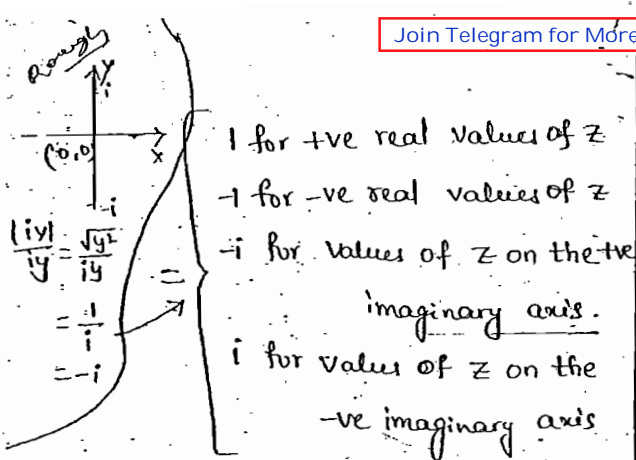 Join Telegram for More
Rough
Y
i
(0,0)
X
-i
|iy|/iy = √y²/iy
= 1/i
= -i
=
1 for +ve real values of z
-1 for -ve real values of z
-i for values of z on the +ve
imaginary axis.
i for values of z on the
-ve imaginary axis